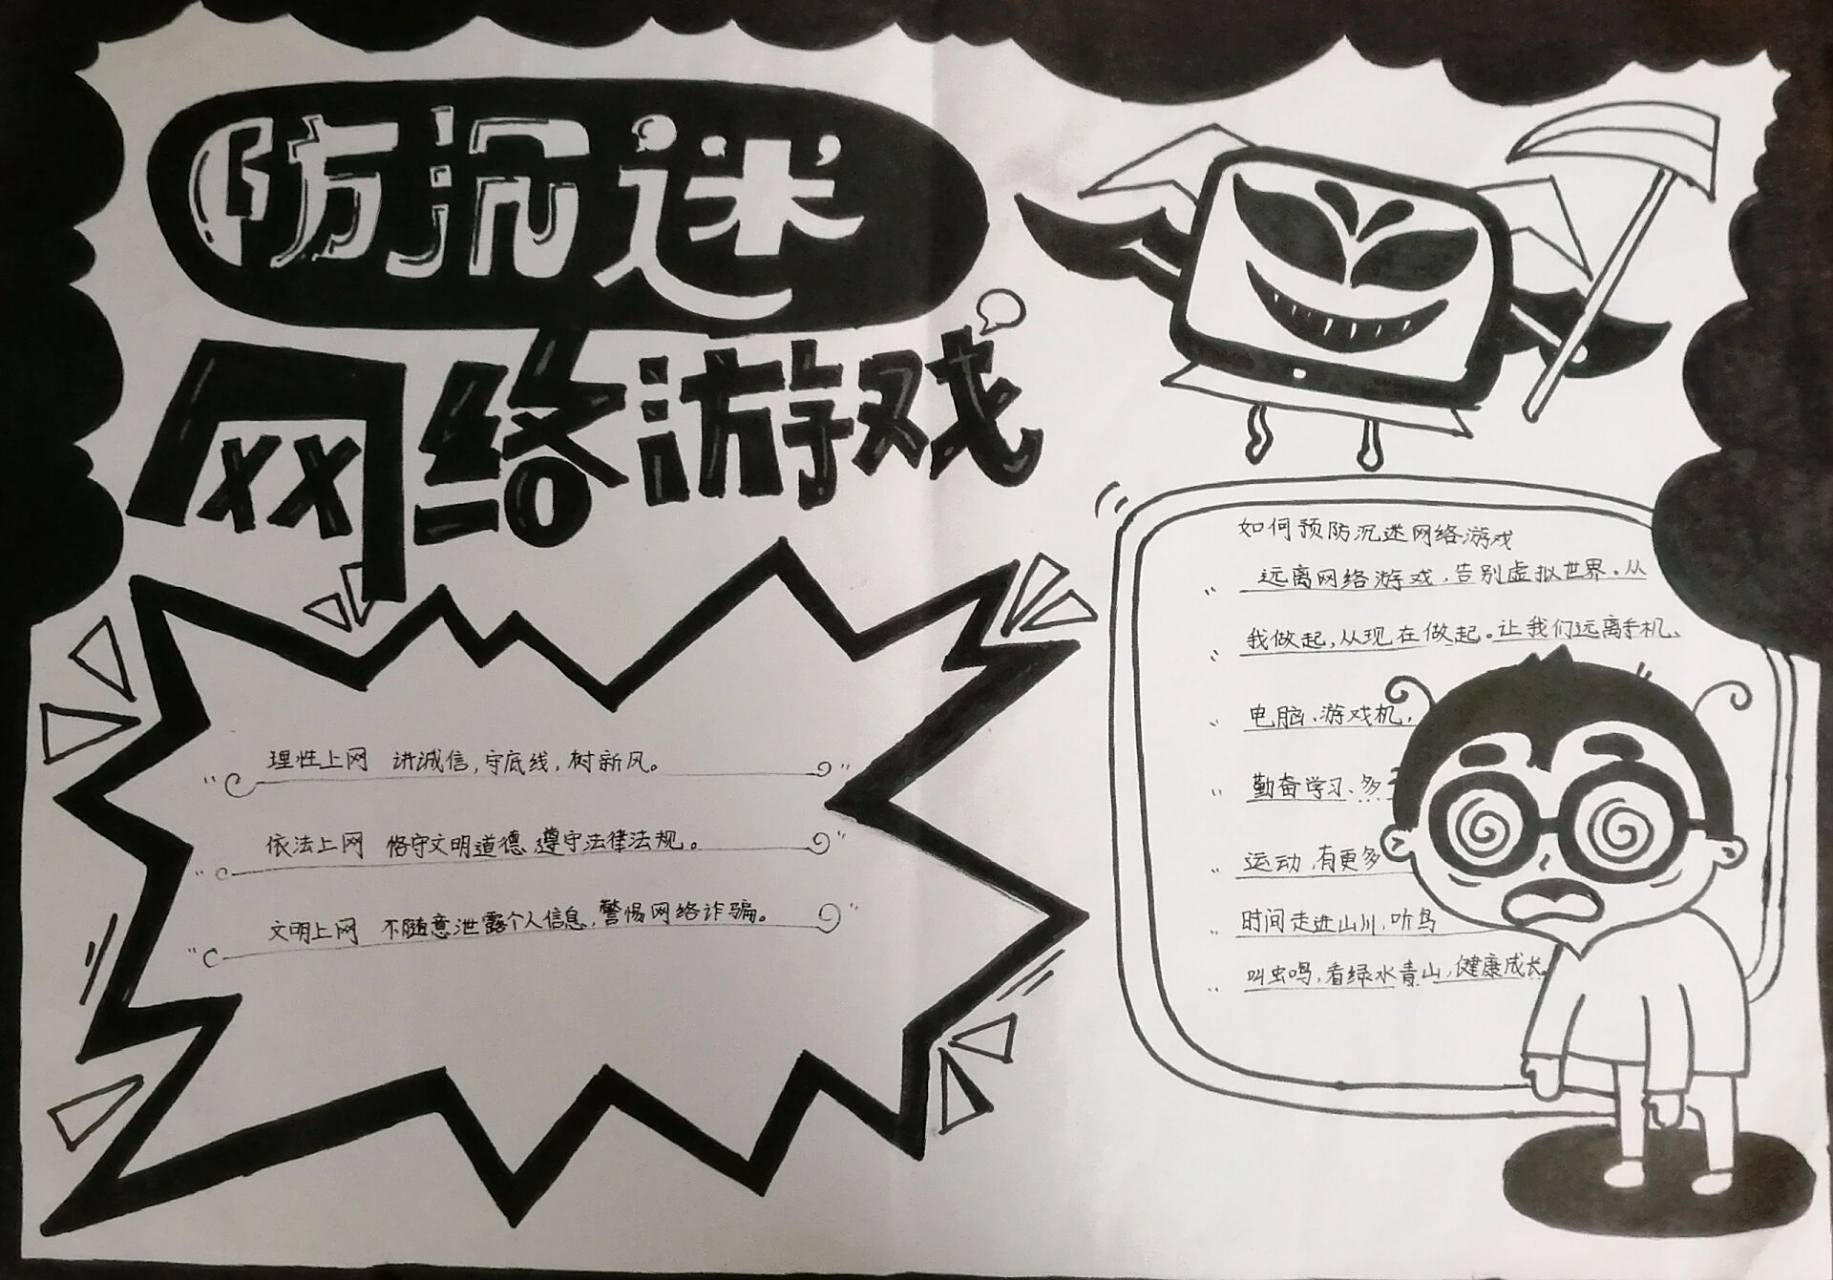 防沉迷
网络游戏
理性上网 讲诚信,守底线,树新风。
依法上网 恪守文明道德、遵守法律法规。
文明上网 不随意泄露个人信息,警惕网络诈骗。
如何预防沉迷网络游戏
远离网络游戏,告别虚拟世界。从
我做起,从现在做起。让我们远离手机、
电脑、游戏机,
勤奋学习、多
运动,有更多
时间走进山川,听鸟
叫虫鸣,看绿水青山,健康成长。